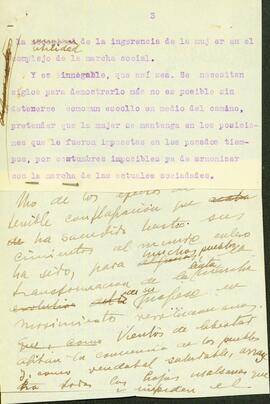 3
la necesidad de la ingerencia de la mujer en el
utilidad
complejo de la marcha social.
Y es innegable, que así sea. Se necesitan
siglos para demostrarlo más no es posible sin
detenerse como un escollo en medio del camino,
pretender que la mujer se mantenga en las posicio-
nes que le fueron impuestas en los pasados tiem-
pos, por costumbres imposibles ya de armonizar
con la marcha de las actuales sociedades.
Uno de los efectos de
terrible conflagración que
ha sacudido hasta sus
cimientos al mundo entero
ha sido, para muchos pueblos
transformación de la marcha
evolutiva
movimiento revolucionario.
que, como vientos de libertad
agitan la conciencia de los pueblos
y, como vendabal saludable,
todas las hojas malsanas que
impiden el